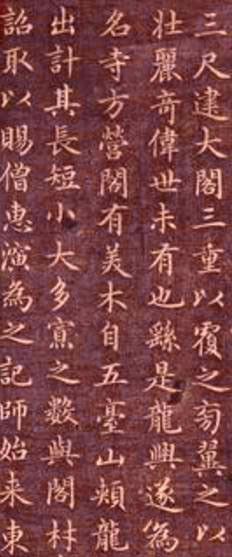 三尺建大閣三重以覆之旁翼之以
壯麗奇偉世未有也繇是龍興遂為
名寺方營閣有美木自五臺山頰龍
出計其長短小大多寡之數與閣材
詔取以賜僧惠演為之記師始来東